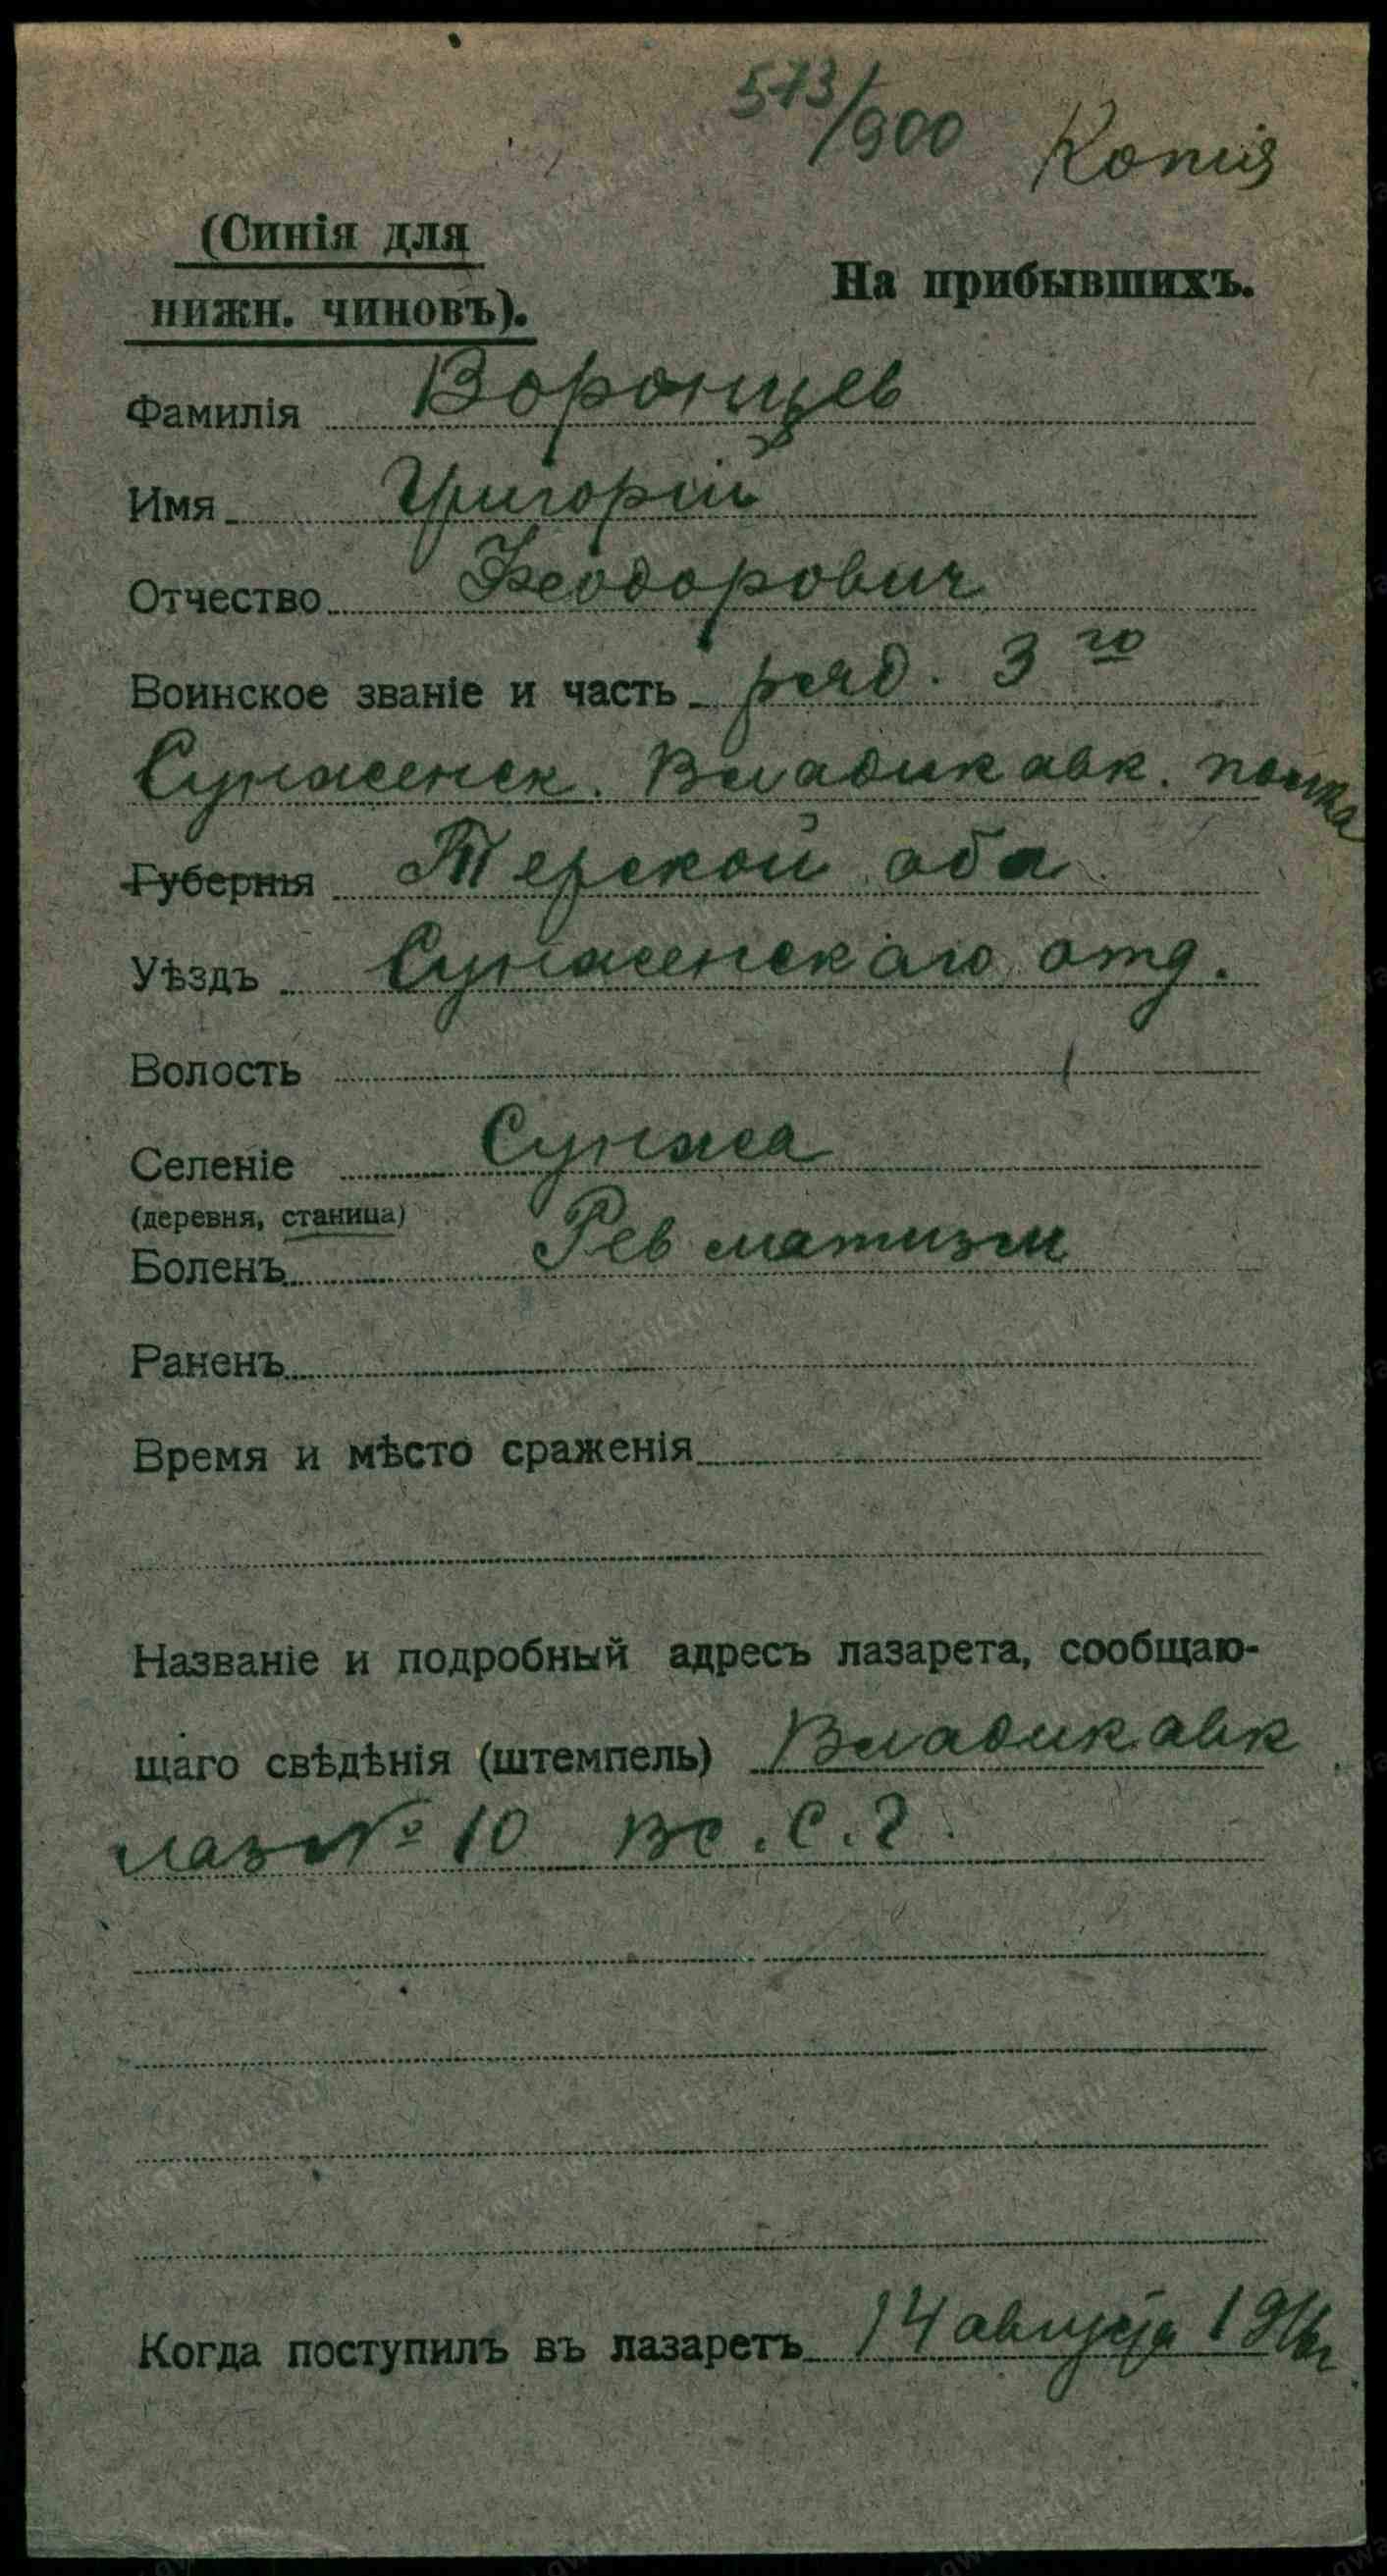 573/900 Копия
(Синія для
На прибывшихъ.
нижн. чиновъ).
Фамилія Воронцев
Имя Григорій
Отчество Феодорович
Воинское званіе и часть ряд. 3го
Сунженск. Владикавк. полка
Губернія Терской обл.
Уѣздъ Сунженскаго отд.
Волость
Селеніе Сунжа
(деревня, станица)
Боленъ Ревматизм
Раненъ
Время и мѣсто сраженія
Названіе и подробный адресъ лазарета, сообщаю-
щаго свѣдѣнія (штемпель) Владикавк
лаз № 10 Вс. С. Г.
Когда поступилъ въ лазаретъ 14 августа 1916г.